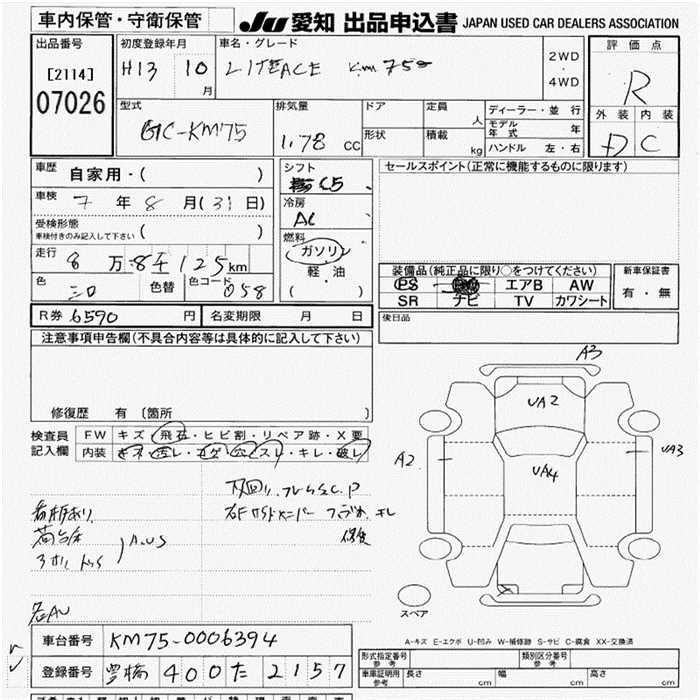 車内保管・守衛保管
JU 愛知 出品申込書 JAPAN USED CAR DEALERS ASSOCIATION
出品番号
[2114]
07026
初度登録年月
H13 10
月
車名・グレード
LITEACE KM75
2WD
・
4WD
評価点
R
外装 内装
D C
型式
GC-KM75
排気量
1.78 CC
ドア
形状
定員
人
積載
kg
ディーラー・並行
モデル年式 年
ハンドル 左・右
車歴
自家用・( )
車検 7 年 8 月(31日)
受検形態
車検付きのみ記入して下さい ( )
走行
8 万 8千125km
色
シロ
色替
色コード
058
シフト
C5
冷房
AC
燃料
ガソリン
軽・油
( )
セールスポイント(正常に機能するものに限ります)
装備品(純正品に限り○をつけてください)
PS エアB AW
SR ナビ TV カワシート
新車保証書
有・無
R券 6570 円
名変期限 月 日
後日品
注意事項申告欄(不具合内容等は具体的に記入して下さい)
修復歴 有 〔箇所 〕
検査員
記入欄
FW キズ・飛石・ヒビ割・リペア跡・X要
内装 キズ・汚レ・コゲ・穴・スレ・キレ・破レ
下回リ、フレームS.C.P
荷台
A.US
各AU
A3
UA2
A2
UA3
UA4
スペア
A-キズ E-エクボ U-凹み W-補修跡 S-サビ C-腐食 XX-交換済
車台番号 KM75-0006394
登録番号 豊橋 400 た 2157
形式指定番号
参考
類別区分番号
参考
車庫証明用
参考
長さ cm
幅 cm
高さ cm